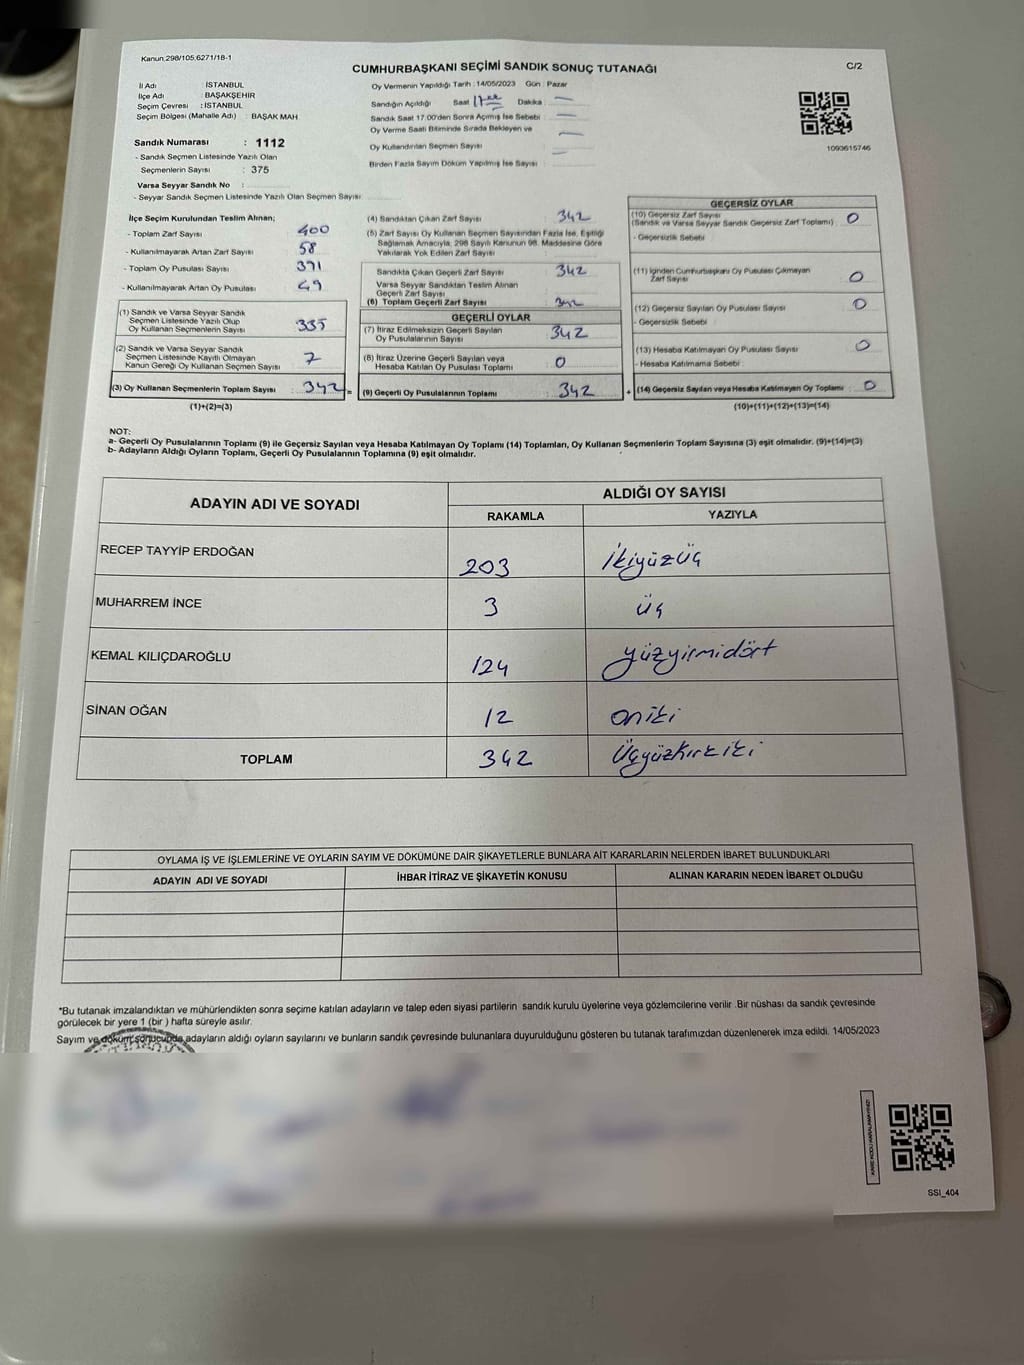 Kanun:298/105,6271/18-1
CUMHURBAŞKANI SEÇİMİ SANDIK SONUÇ TUTANAĞI
C/2
İl Adı : İSTANBUL
İlçe Adı : BAŞAKŞEHİR
Seçim Çevresi : İSTANBUL
Seçim Bölgesi (Mahalle Adı) : BAŞAK MAH
Sandık Numarası : 1112
- Sandık Seçmen Listesinde Yazılı Olan
Seçmenlerin Sayısı : 375
Varsa Seyyar Sandık No :
- Seyyar Sandık Seçmen Listesinde Yazılı Olan Seçmen Sayısı:
Oy Vermenin Yapıldığı Tarih : 14/05/2023 Gün : Pazar
Sandığın Açıldığı Saat 17.00 Dakika : —
Sandık Saat 17.00'den Sonra Açılmış İse Sebebi : —
Oy Verme Saati Bitiminde Sırada Bekleyen ve
Oy Kullandırılan Seçmen Sayısı : —
Birden Fazla Sayım Döküm Yapılmış İse Sayısı : —
1093615746
İlçe Seçim Kurulundan Teslim Alınan;
- Toplam Zarf Sayısı : 400
- Kullanılmayarak Artan Zarf Sayısı : 58
- Toplam Oy Pusulası Sayısı : 391
- Kullanılmayarak Artan Oy Pusulası : 49
(1) Sandık ve Varsa Seyyar Sandık
Seçmen Listesinde Yazılı Olup
Oy Kullanan Seçmenlerin Sayısı : 335
(2) Sandık ve Varsa Seyyar Sandık
Seçmen Listesinde Kayıtlı Olmayan
Kanun Gereği Oy Kullanan Seçmen Sayısı : 7
(3) Oy Kullanan Seçmenlerin Toplam Sayısı : 342 =
(1)+(2)=(3)
(4) Sandıktan Çıkan Zarf Sayısı : 342
(5) Zarf Sayısı Oy Kullanan Seçmen Sayısından Fazla İse, Eşitliği
Sağlamak Amacıyla, 298 Sayılı Kanunun 98. Maddesine Göre
Yakılarak Yok Edilen Zarf Sayısı :
Sandıkta Çıkan Geçerli Zarf Sayısı : 342
Varsa Seyyar Sandıktan Teslim Alınan
Geçerli Zarf Sayısı :
(6) Toplam Geçerli Zarf Sayısı : 342
GEÇERLİ OYLAR
(7) İtiraz Edilmeksizin Geçerli Sayılan
Oy Pusulalarının Sayısı : 342
(8) İtiraz Üzerine Geçerli Sayılan veya
Hesaba Katılan Oy Pusulası Toplamı : 0
(9) Geçerli Oy Pusulalarının Toplamı : 342 +
GEÇERSİZ OYLAR
(10) Geçersiz Zarf Sayısı
(Sandık ve Varsa Seyyar Sandık Geçersiz Zarf Toplamı) : 0
- Geçersizlik Sebebi :
(11) İçinden Cumhurbaşkanı Oy Pusulası Çıkmayan
Zarf Sayısı : 0
(12) Geçersiz Sayılan Oy Pusulası Sayısı : 0
- Geçersizlik Sebebi :
(13) Hesaba Katılmayan Oy Pusulası Sayısı : 0
- Hesaba Katılmama Sebebi :
(14) Geçersiz Sayılan veya Hesaba Katılmayan Oy Toplamı : 0
(10)+(11)+(12)+(13)=(14)
NOT:
a- Geçerli Oy Pusulalarının Toplamı (9) ile Geçersiz Sayılan veya Hesaba Katılmayan Oy Toplamı (14) Toplamları, Oy Kullanan Seçmenlerin Toplam Sayısına (3) eşit olmalıdır. (9)+(14)=(3)
b- Adayların Aldığı Oyların Toplamı, Geçerli Oy Pusulalarının Toplamına (9) eşit olmalıdır.
ADAYIN ADI VE SOYADI
ALDIĞI OY SAYISI
RAKAMLA YAZIYLA
RECEP TAYYİP ERDOĞAN 203 İkiyüzüç
MUHARREM İNCE 3 üç
KEMAL KILIÇDAROĞLU 124 yüzyirmidört
SİNAN OĞAN 12 oniki
TOPLAM 342 Üçyüzkırkiki
OYLAMA İŞ VE İŞLEMLERİNE VE OYLARIN SAYIM VE DÖKÜMÜNE DAİR ŞİKAYETLERLE BUNLARA AİT KARARLARIN NELERDEN İBARET BULUNDUKLARI
ADAYIN ADI VE SOYADI İHBAR İTİRAZ VE ŞİKAYETİN KONUSU ALINAN KARARIN NEDEN İBARET OLDUĞU
*Bu tutanak imzalandıktan ve mühürlendikten sonra seçime katılan adayların ve talep eden siyasi partilerin sandık kurulu üyelerine veya gözlemcilerine verilir .Bir nüshası da sandık çevresinde
görülecek bir yere 1 (bir ) hafta süreyle asılır.
Sayım ve döküm sonucunda adayların aldığı oyların sayılarını ve bunların sandık çevresinde bulunanlara duyurulduğunu gösteren bu tutanak tarafımızdan düzenlenerek imza edildi. 14/05/2023
SSI_404